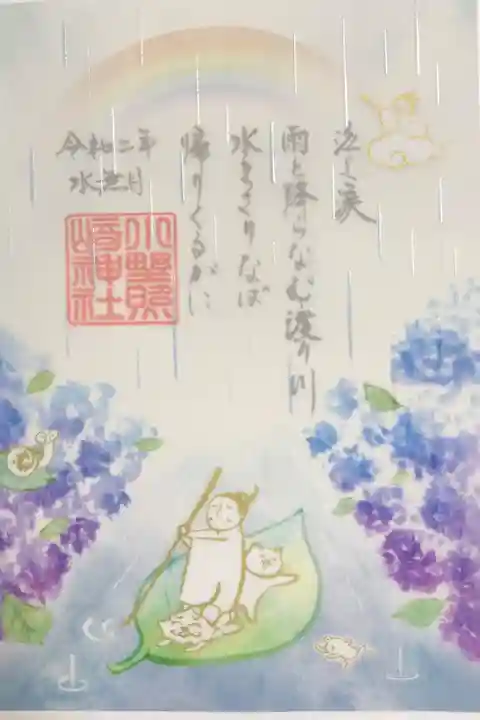 泣く涙
雨と降らなむ渡り川
水まさりなば
帰りくるがに
令和二年
水無月
小野照
崎神社